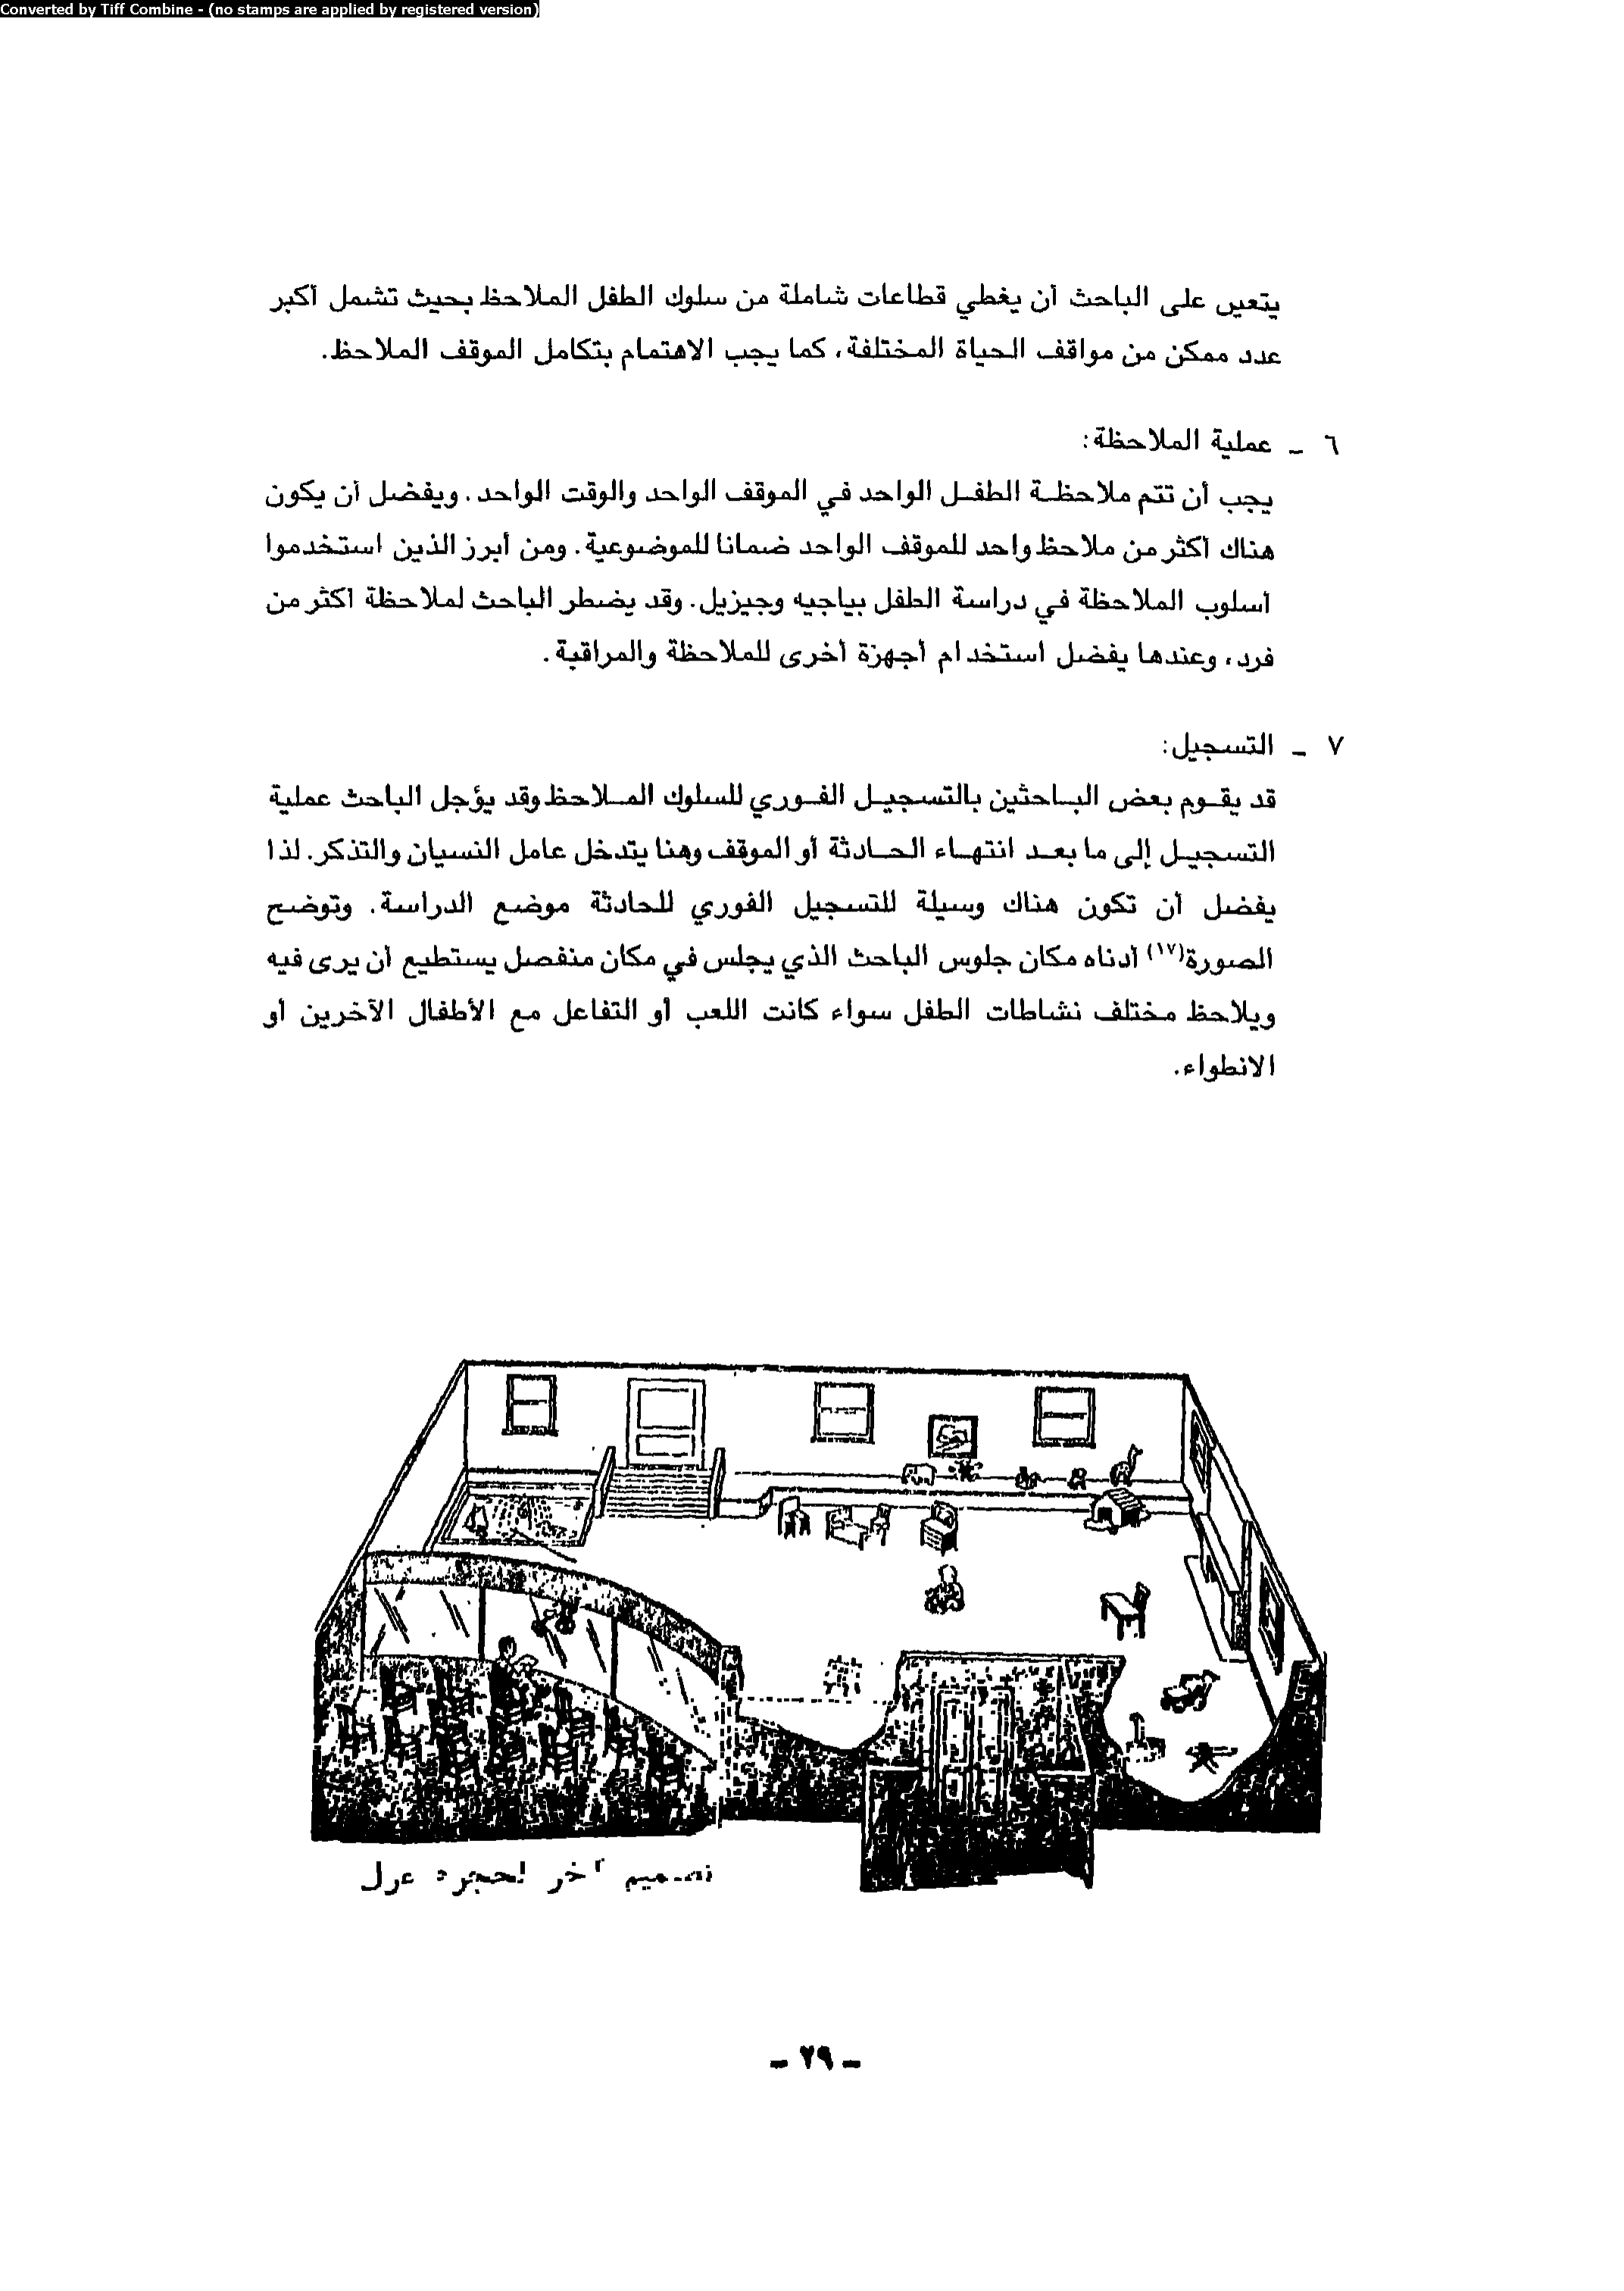 Converted by Tiff Combine - (no stamps are applied by registered version)
يتعين على الباحث أن يغطي قطاعات شاملة من سلوك الطفل الملاحظ بحيث تشمل أكبر
عدد ممكن من مواقف الحياة المختلفة، كما يجب الاهتمام بتكامل الموقف الملاحظ.
٦ ـ عملية الملاحظة:
يجب أن تتم ملاحظة الطفل الواحد في الموقف الواحد والوقت الواحد. ويفضل أن يكون
هناك أكثر من ملاحظ واحد للموقف الواحد ضمانا للموضوعية. ومن أبرز الذين استخدموا
أسلوب الملاحظة في دراسة الطفل بياجيه وجيزيل. وقد يضطر الباحث لملاحظة أكثر من
فرد، وعندها يفضل استخدام أجهزة أخرى للملاحظة والمراقبة.
٧ ـ التسجيل:
قد يقوم بعض الباحثين بالتسجيل الفوري للسلوك الملاحظ وقد يؤجل الباحث عملية
التسجيل إلى ما بعد انتهاء الحادثة أو الموقف وهنا يتدخل عامل النسيان والتذكر. لذا
يفضل أن تكون هناك وسيلة للتسجيل الفوري للحادثة موضع الدراسة. وتوضح
الصورة(١٧) أدناه مكان جلوس الباحث الذي يجلس في مكان منفصل يستطيع أن يرى فيه
ويلاحظ مختلف نشاطات الطفل سواء كانت اللعب أو التفاعل مع الأطفال الآخرين أو
الانطواء.
تصميم آخر لحجرة عزل
- ٢٩ -